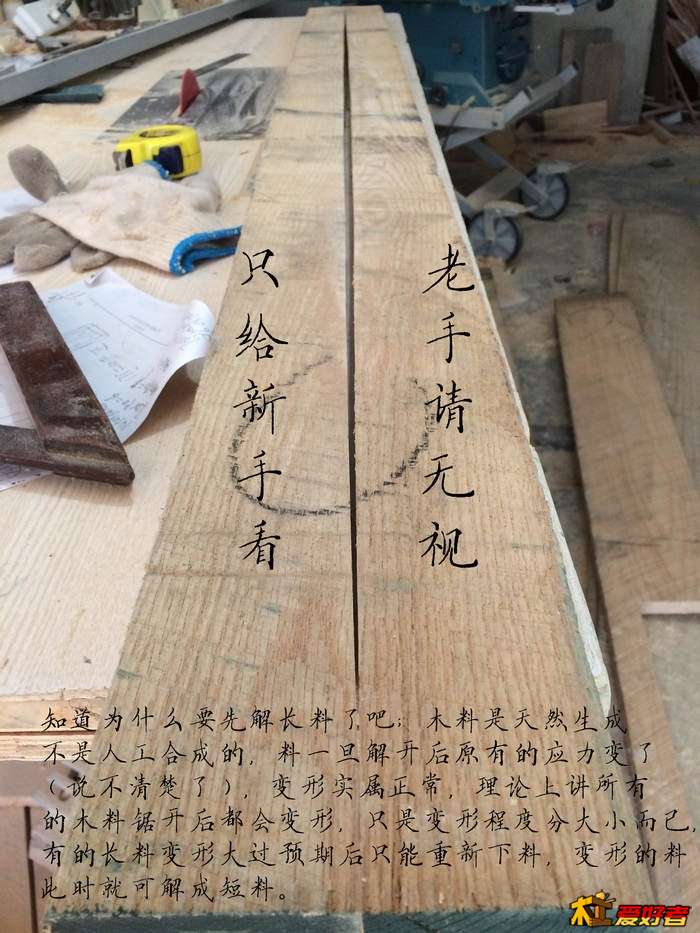 只给新手看
老手请无视
知道为什么要先解长料了吧；木料是天然生成
不是人工合成的，料一旦解开后原有的应力变了
（说不清楚了），变形实属正常，理论上讲所有
的木料锯开后都会变形，只是变形程度分大小而已，
有的长料变形大过预期后只能重新下料，变形的料
此时就可解成短料。
木工爱好者